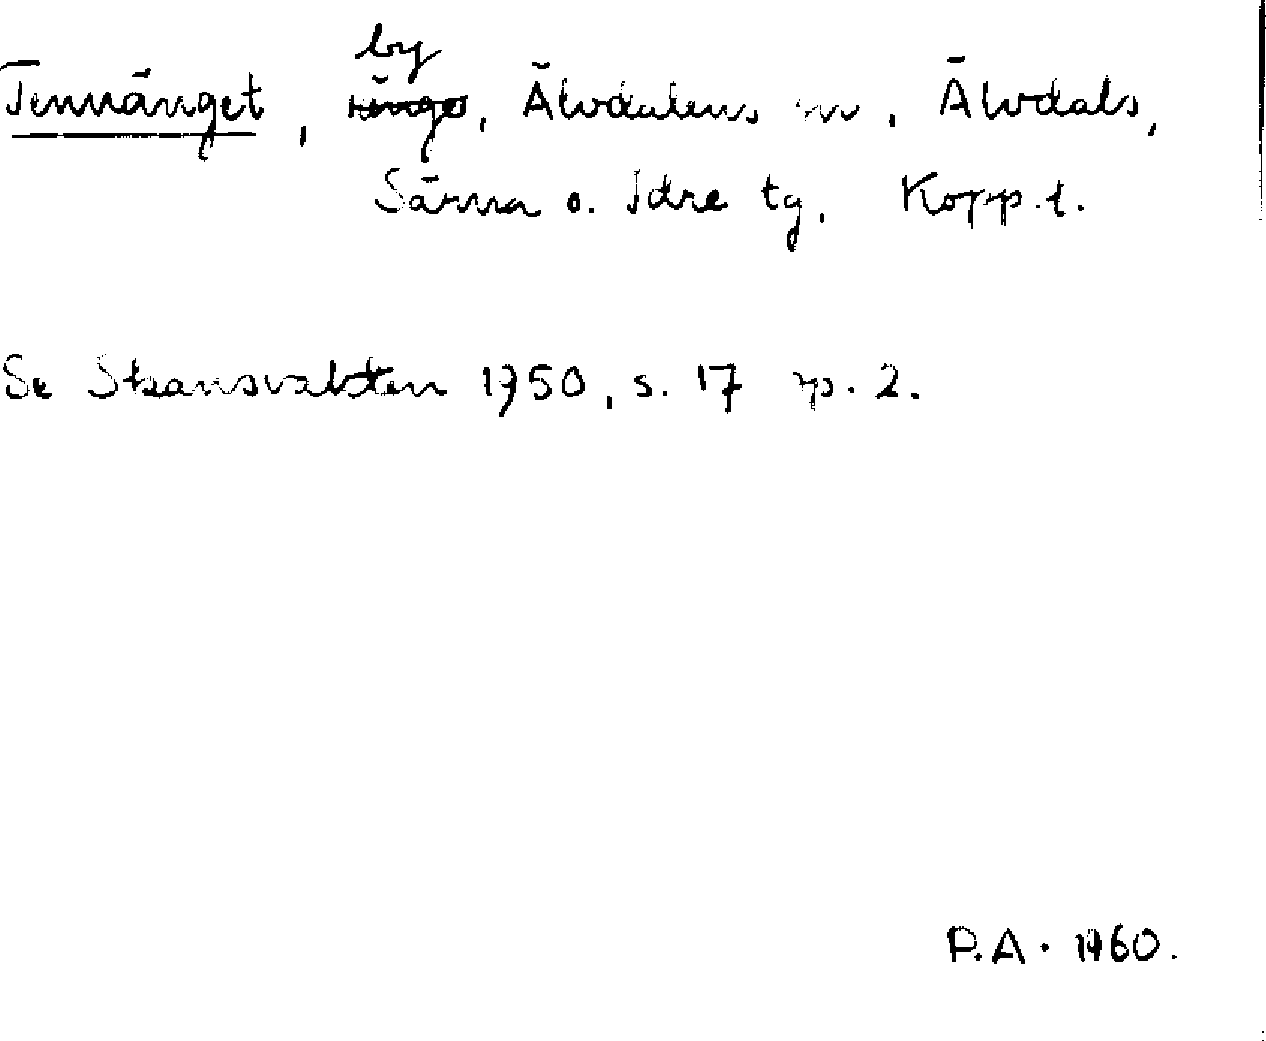 by
Tennänget, änge, Älvdalens sn, Älvdals,
Särna o. Idre tg, Kopp. l.
Se Skansvakten 1950, s. 17 sp. 2.
P.A. 1960.